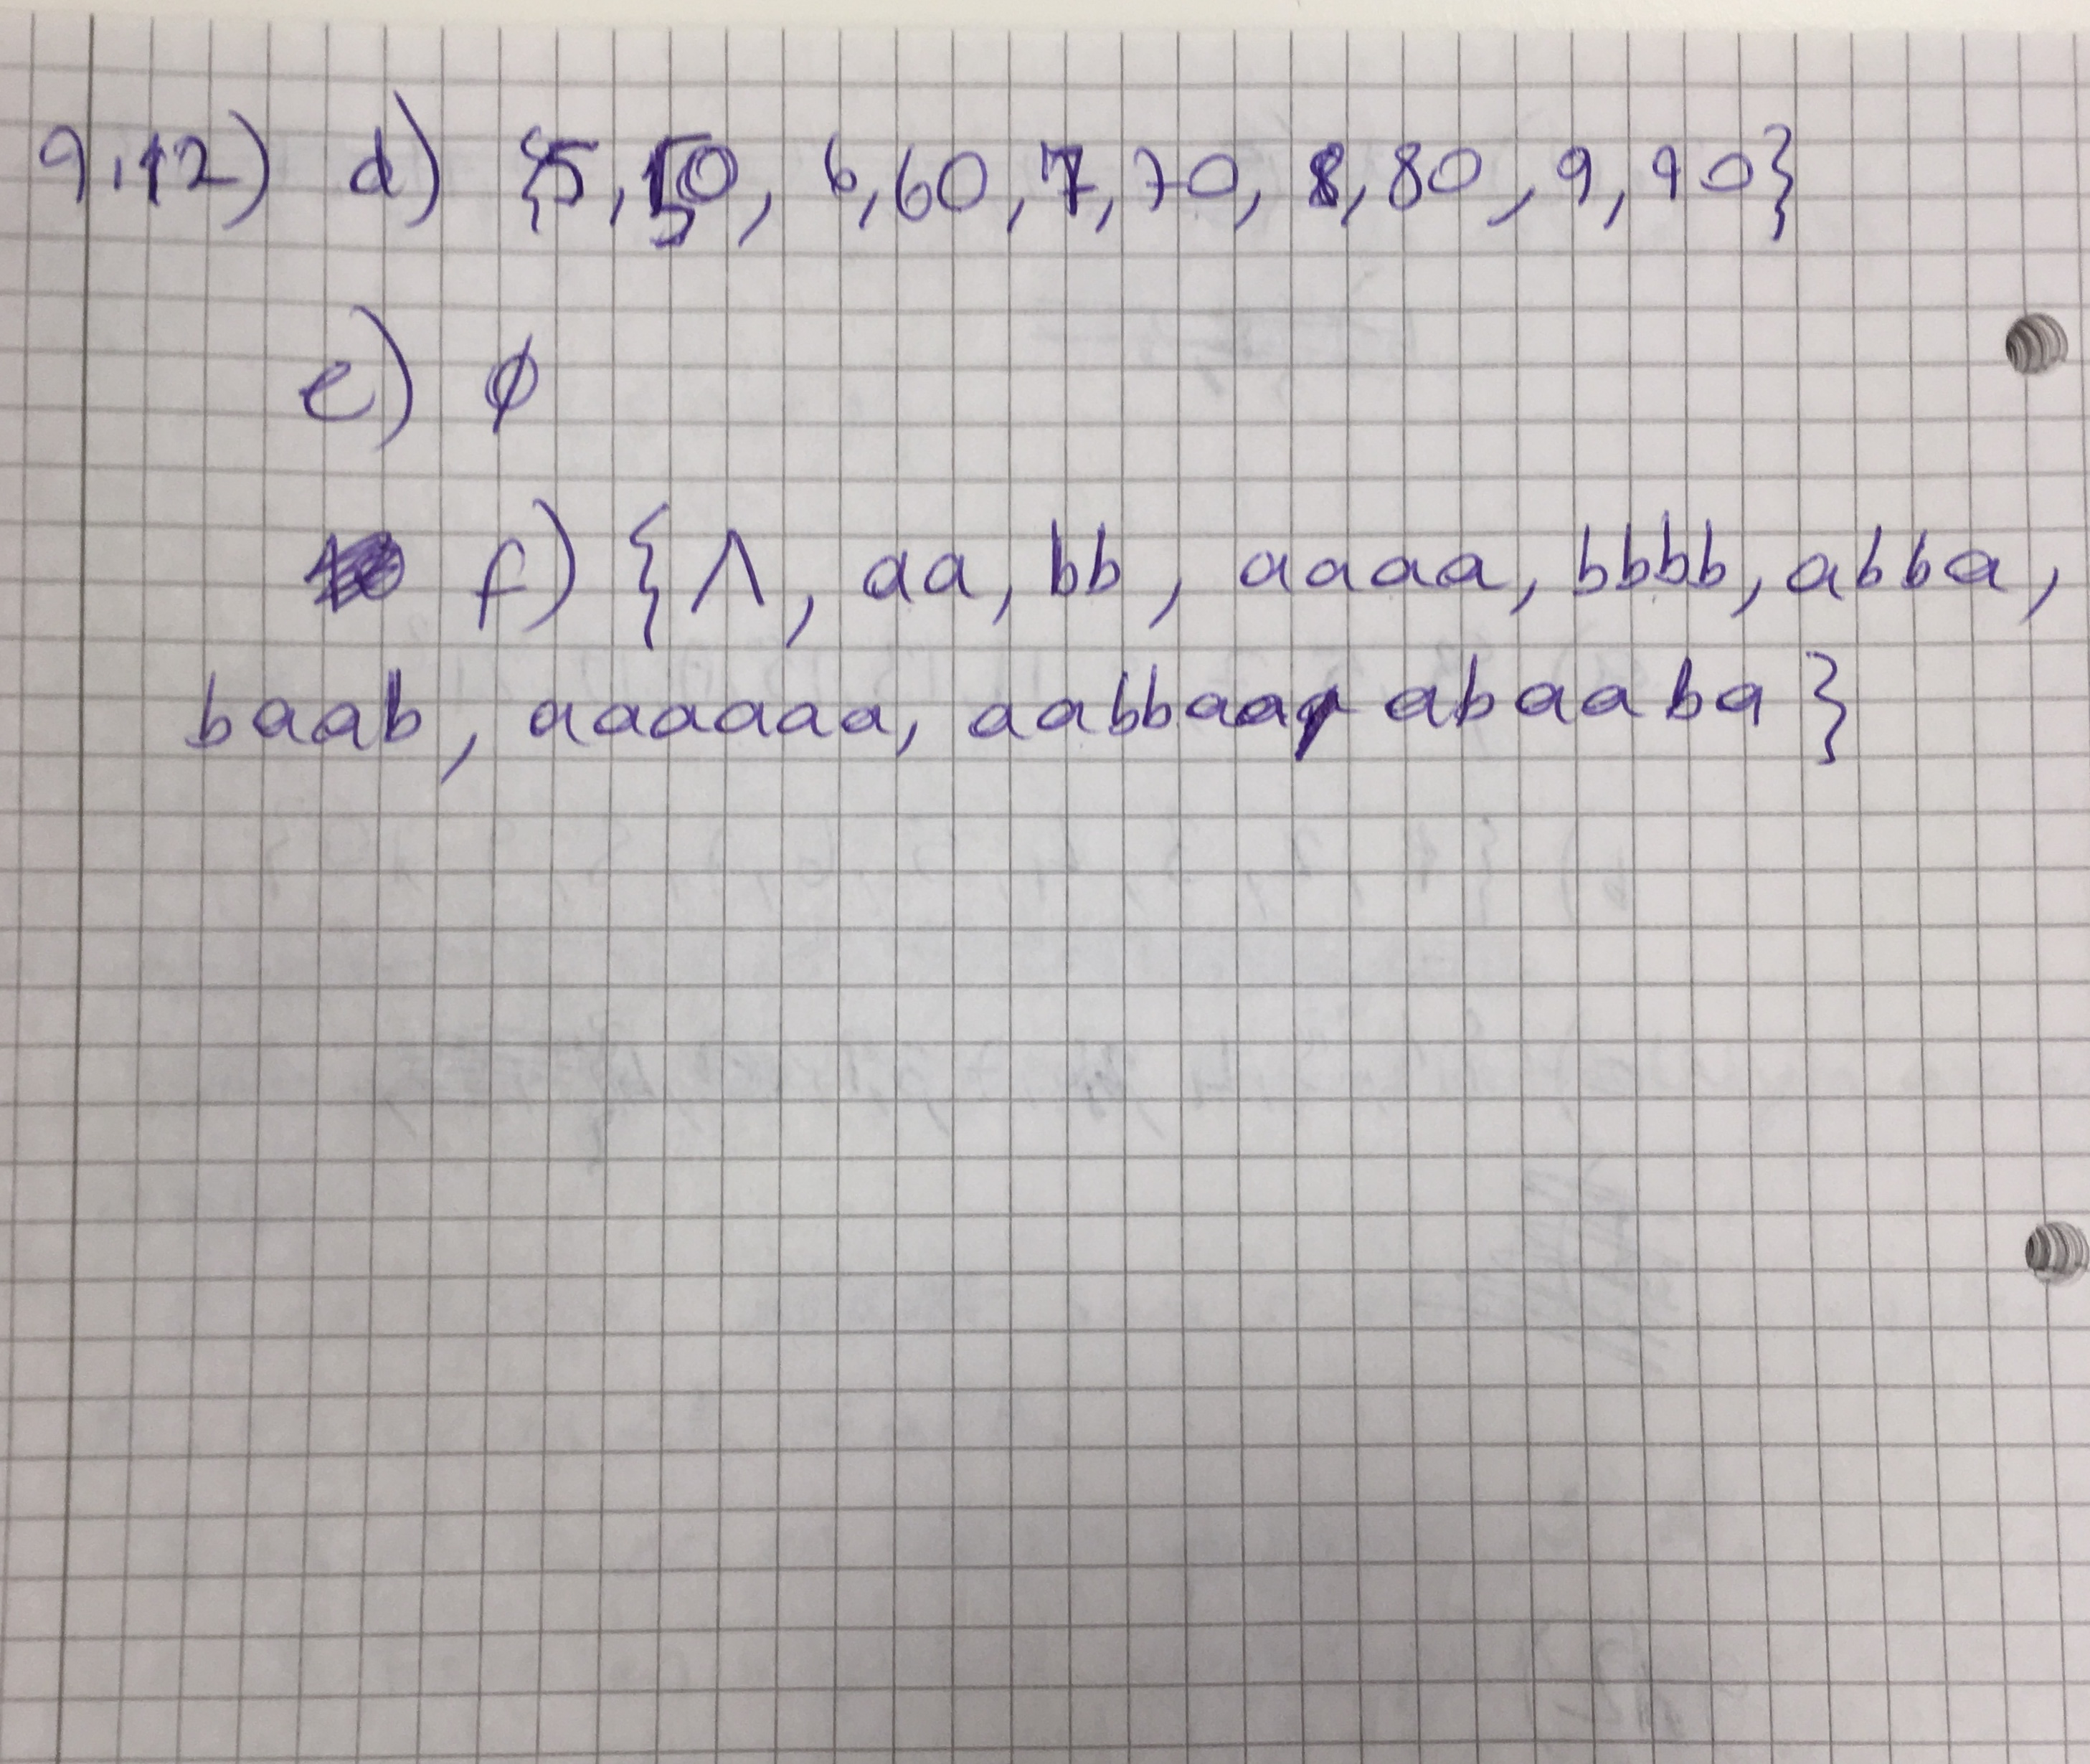 9.12) d) {5, 50, 6, 60, 7, 70, 8, 80, 9, 90}
e) ∅
f) {Λ, aa, bb, aaaa, bbbb, abba,
baab, aaaaaa, aabbaa, abaaba}